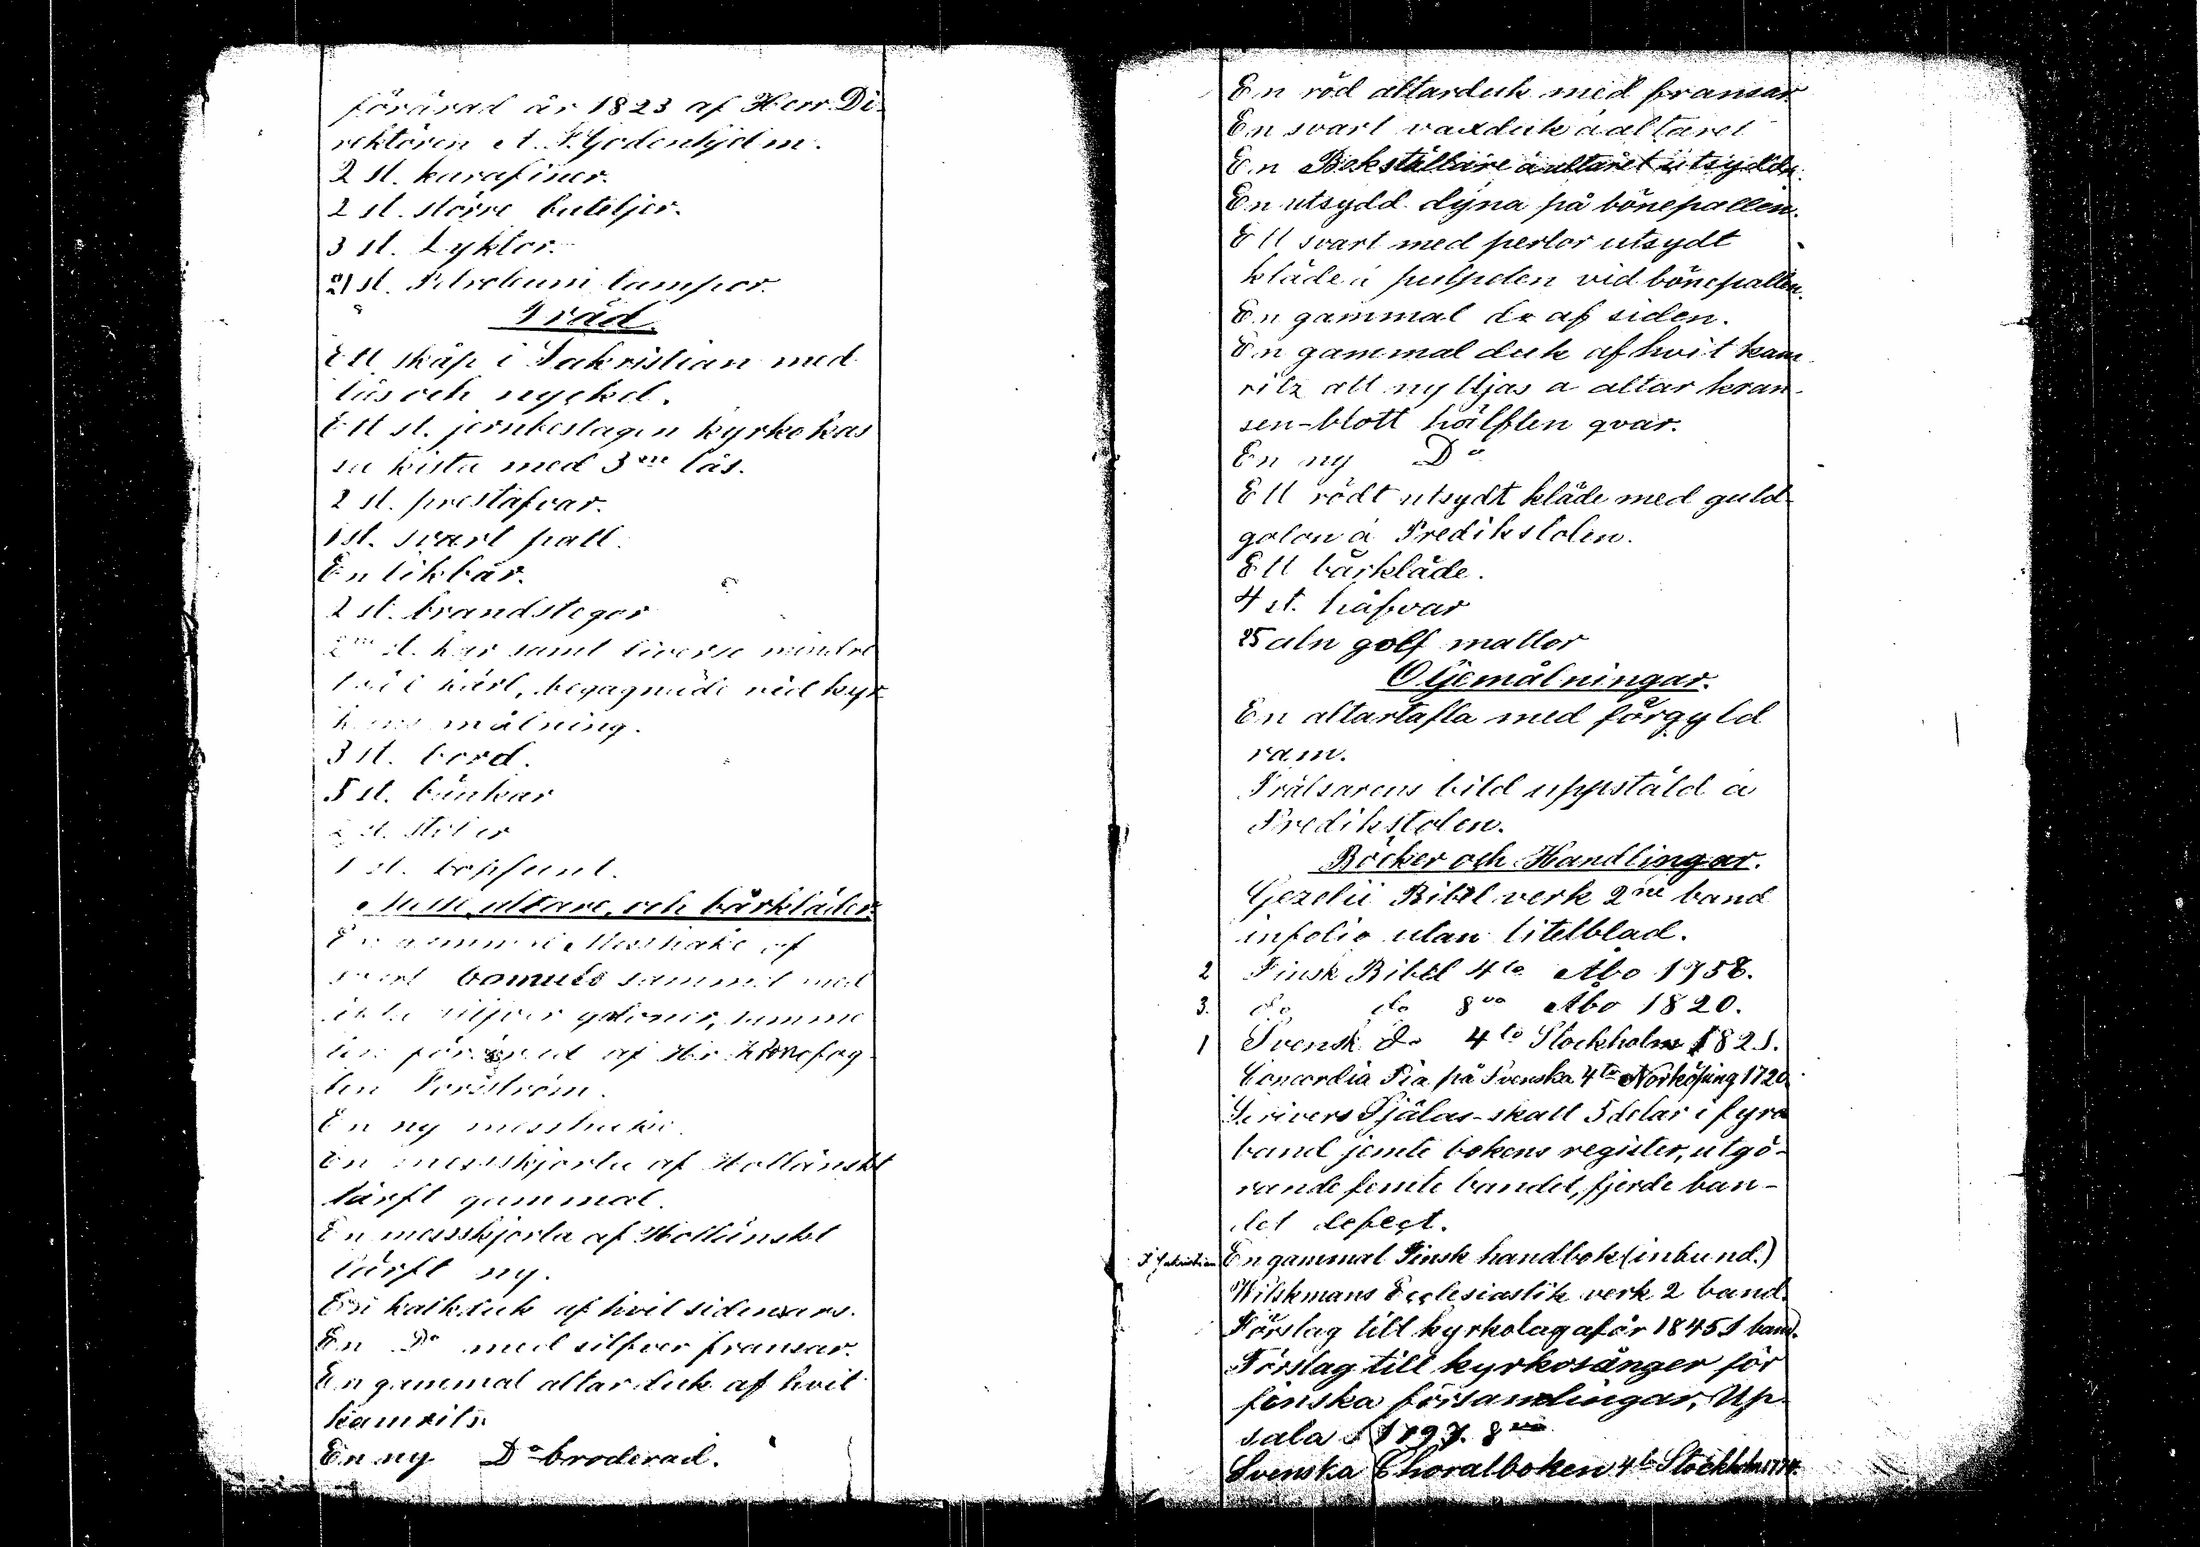 förärad år 1823 af Herr Di-
rektören A. F. Godenhjelm.
2 st. karafiner.
2 st. större buteljer.
3 st. Lyktor.
21 st. Petroleum lampor.
Träd.
Ett skåp i Sakristian med
lås och nyckel.
Ett st. jernbeslagen kyrkokas
sa kista med 3ne lås.
2 st. prestafvar.
1 st. svart pall.
En likbår.
2 st. brandstegar
2ne st. kar samt diverse mindre
träkärl, begagnade vid kyr-
kans målning.
3 st. bord.
5 st. bänkar
2 st. stolar
1 st. dopfunt.
altare, och bårkläder.
En gammal Messhake af
svart bomuls sammet med
silfver galoner, samme
förärad af Hr Kronofog-
den
En ny messhake.
En messskjorta af Holländskt
lärft gammal.
En messskjorta af Holländskt
lärft ny.
En kalkduk af hvit sidensars.
En Do med silfver fransar.
En gammal altarduk af hvit
kamrits.
En ny Do broderad.
En röd altarduk med fransar
En svart vaxduk å altaret
En Bokställare å altaret utsydde.
En utsydd dyna på bönepallen.
Ett svart med perlor utsydt
kläde å pulpeten vid bönepallen.
En gammal do af siden.
En gammal duk af hvit kam
ritz att nyttjas å altar kran-
sen-blott hälften qvar.
En ny Do
Ett rödt utsydt kläde med guld-
galon å Predikstolen.
Ett bårkläde.
4 st. håfvar
25 aln golf mattor
Oljemålningar.
En altartafla med förgyld
ram.
Frälsarens bild uppstäld å
Predikstolen.
Böcker och Handlingar.
Gezelii Bibel verk 2ne band
infolio utan titelblad.
2 Finsk Bibel 4to Åbo 1758.
3. do do 8vo Åbo 1820.
1 Svensk do 4to Stockholm 1821.
Concordia Pia på Svenska 4to Norköping 1720
Scrivers Själas-skatt 5 delar i fyra
band jemte bokens register, utgö-
rande femte bandet, fjerde ban-
det defect.
I Sakristian En gammal Finsk handbok (inbund.)
Wilskmans Ecclesiastik verk 2 band.
Förslag till kyrkolag af år 1845 1 band.
Förslag till kyrkosånger för
finska församlingar, Up-
sala 1797. 8vo
Svenska Choralboken 4to Stockholm